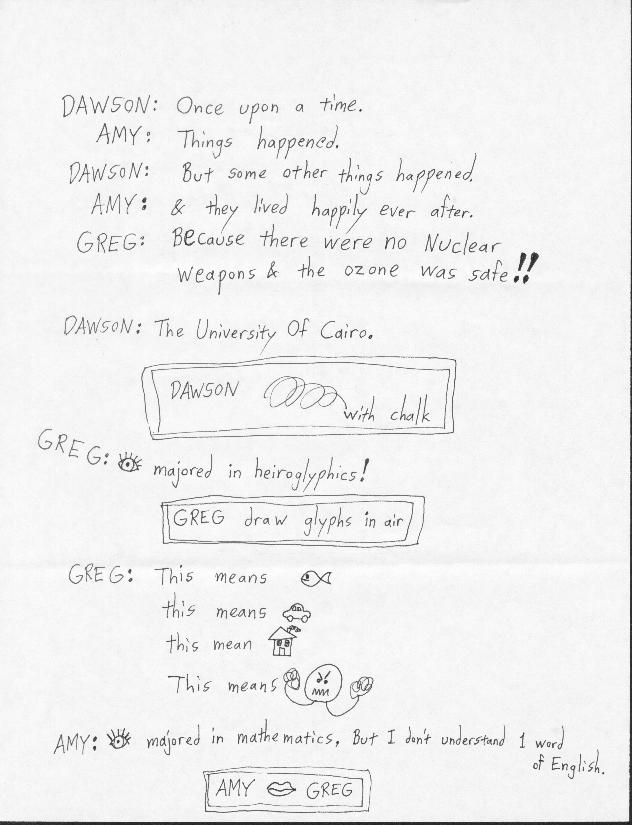 DAWSON: Once upon a time.
AMY: Things happened.
DAWSON: But some other things happened.
AMY: & they lived happily ever after.
GREG: Because there were no Nuclear
weapons & the ozone was safe!!
DAWSON: The University Of Cairo.
DAWSON
with chalk
GREG: majored in heiroglyphics!
GREG draw glyphs in air
GREG: This means
this means
this mean
This means
AMY: majored in mathematics, But I don't understand 1 word
of English.
AMY GREG